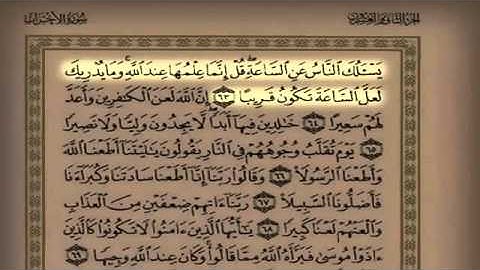 الجزء الثاني والعشرون سورة الأحزاب
يَسْـَٔلُكَ النَّاسُ عَنِ السَّاعَةِ ۖ قُلْ إِنَّمَا عِلْمُهَا عِندَ اللَّهِ ۚ وَمَا يُدْرِيكَ
لَعَلَّ السَّاعَةَ تَكُونُ قَرِيبًا ٦٣ إِنَّ اللَّهَ لَعَنَ الْكَٰفِرِينَ وَأَعَدَّ
لَهُمْ سَعِيرًا ٦٤ خَٰلِدِينَ فِيهَا أَبَدًا ۖ لَّا يَجِدُونَ وَلِيًّا وَلَا نَصِيرًا
٦٥ يَوْمَ تُقَلَّبُ وُجُوهُهُمْ فِي النَّارِ يَقُولُونَ يَٰلَيْتَنَا أَطَعْنَا اللَّهَ
وَأَطَعْنَا الرَّسُولَا ٦٦ وَقَالُوا رَبَّنَا إِنَّا أَطَعْنَا سَادَتَنَا وَكُبَرَاءَنَا
فَأَضَلُّونَا السَّبِيلَا ٦٧ رَبَّنَا ءَاتِهِمْ ضِعْفَيْنِ مِنَ الْعَذَابِ
وَالْعَنْهُمْ لَعْنًا كَبِيرًا ٦٨ يَٰأَيُّهَا الَّذِينَ ءَامَنُوا لَا تَكُونُوا كَالَّذِينَ
ءَاذَوْا مُوسَىٰ فَبَرَّأَهُ اللَّهُ مِمَّا قَالُوا ۚ وَكَانَ عِندَ اللَّهِ وَجِيهًا ٦٩